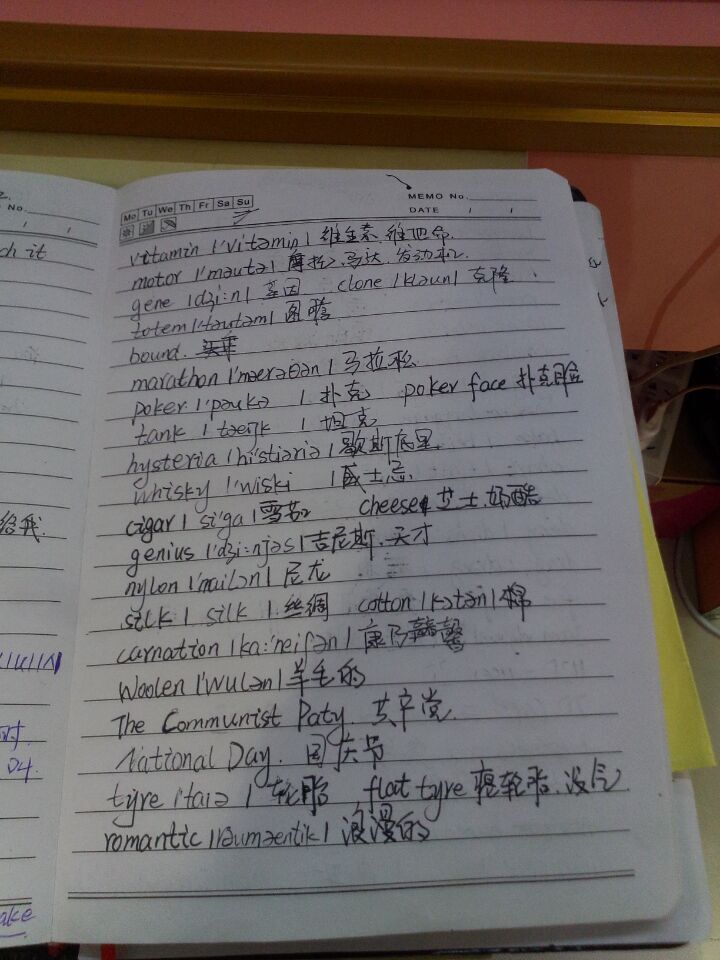 No.
ch it
给我
时
04.
ake
Mo Tu We Th Fr Sa Su
MEMO No.
DATE / /
vitamin |'vitəmin| 维生素.维他命.
motor |'məutə| 摩托.马达.发动机.
gene |dʒi:n| 基因 clone |kləun| 克隆
totem |'təutəm| 图腾
bound.
marathon |'mærəθən| 马拉松
poker |'pəukə | 扑克 poker face 扑克脸
tank | tæŋk | 坦克
hysteria |hi'stiəriə| 歇斯底里.
whisky |'wiski |威士忌.
cigar | si'ga | 雪茄 cheese 芝士.奶酪
genius |'dʒi:njəs| 吉尼斯.天才
nylon |'nailən| 尼龙
silk | silk | 丝绸 cotton |kɔtən| 棉
carnation |ka:'neiʃən| 康乃馨
Woolen |'wulən| 羊毛的
The Communist Paty. 共产党.
National Day. 国庆节
tyre |'taiə | 轮胎 flat tyre 瘪轮胎.没气
romantic |rəumæntik| 浪漫的